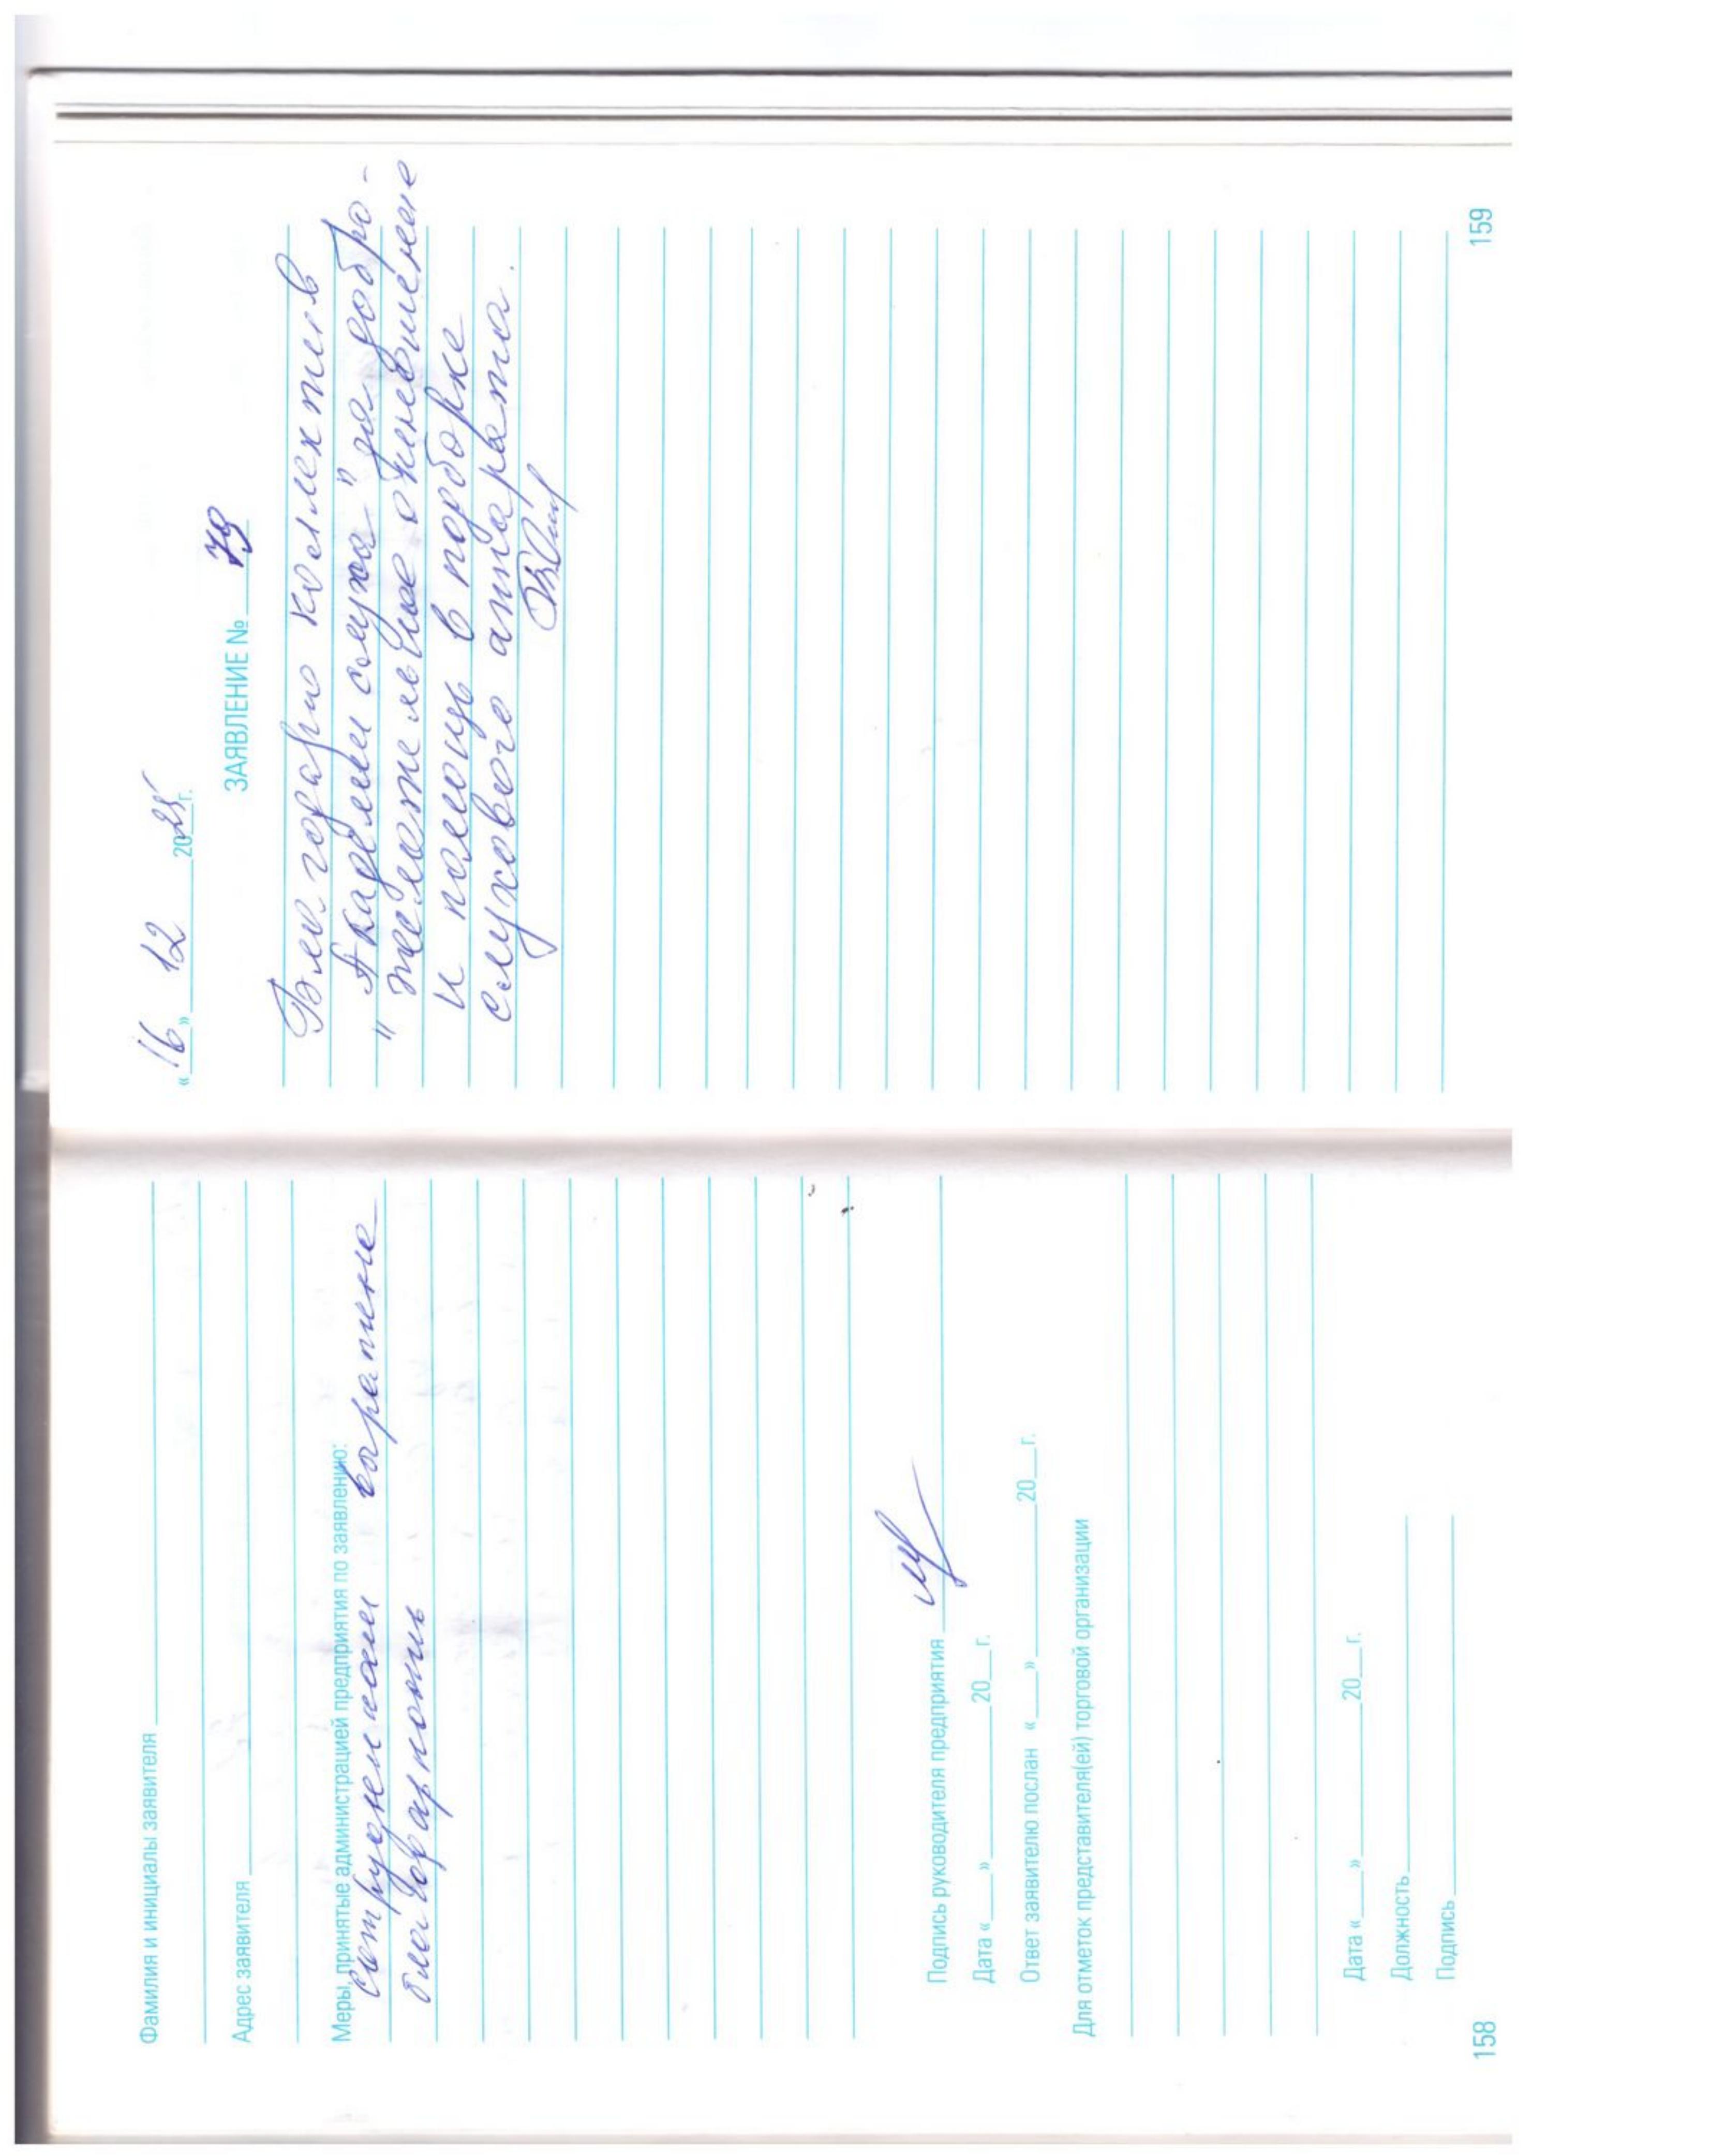 Фамилия и инициалы заявителя
Адрес заявителя
Меры, принятые администрацией предприятия по заявлению:
Сотрудникам выражена
благодарность
Подпись руководителя предприятия
Дата «___»______20__г.
Ответ заявителю послан «___»______20__г.
Для отметок представителя(ей) торговой организации
Дата «___»______20__г.
Должность
Подпись
158
«16» 12 2025г.
ЗАЯВЛЕНИЕ № 79
Благодарю коллектив
"Академии слуха" за добро-
желательное отношение
и помощь в подборке
слухового аппарата.
159